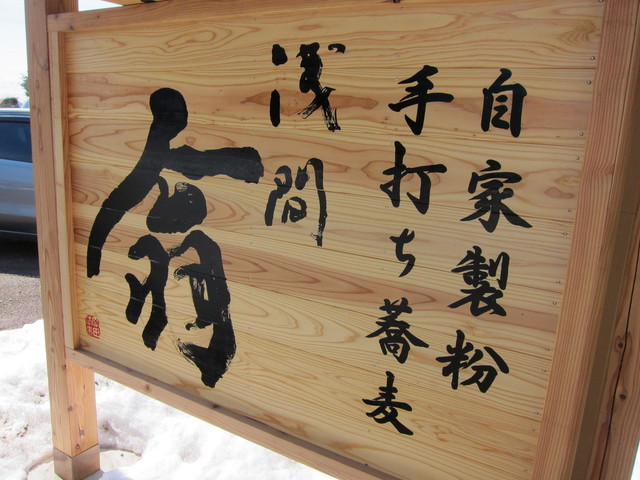 自家製粉
手打ち蕎麦
浅間
翁